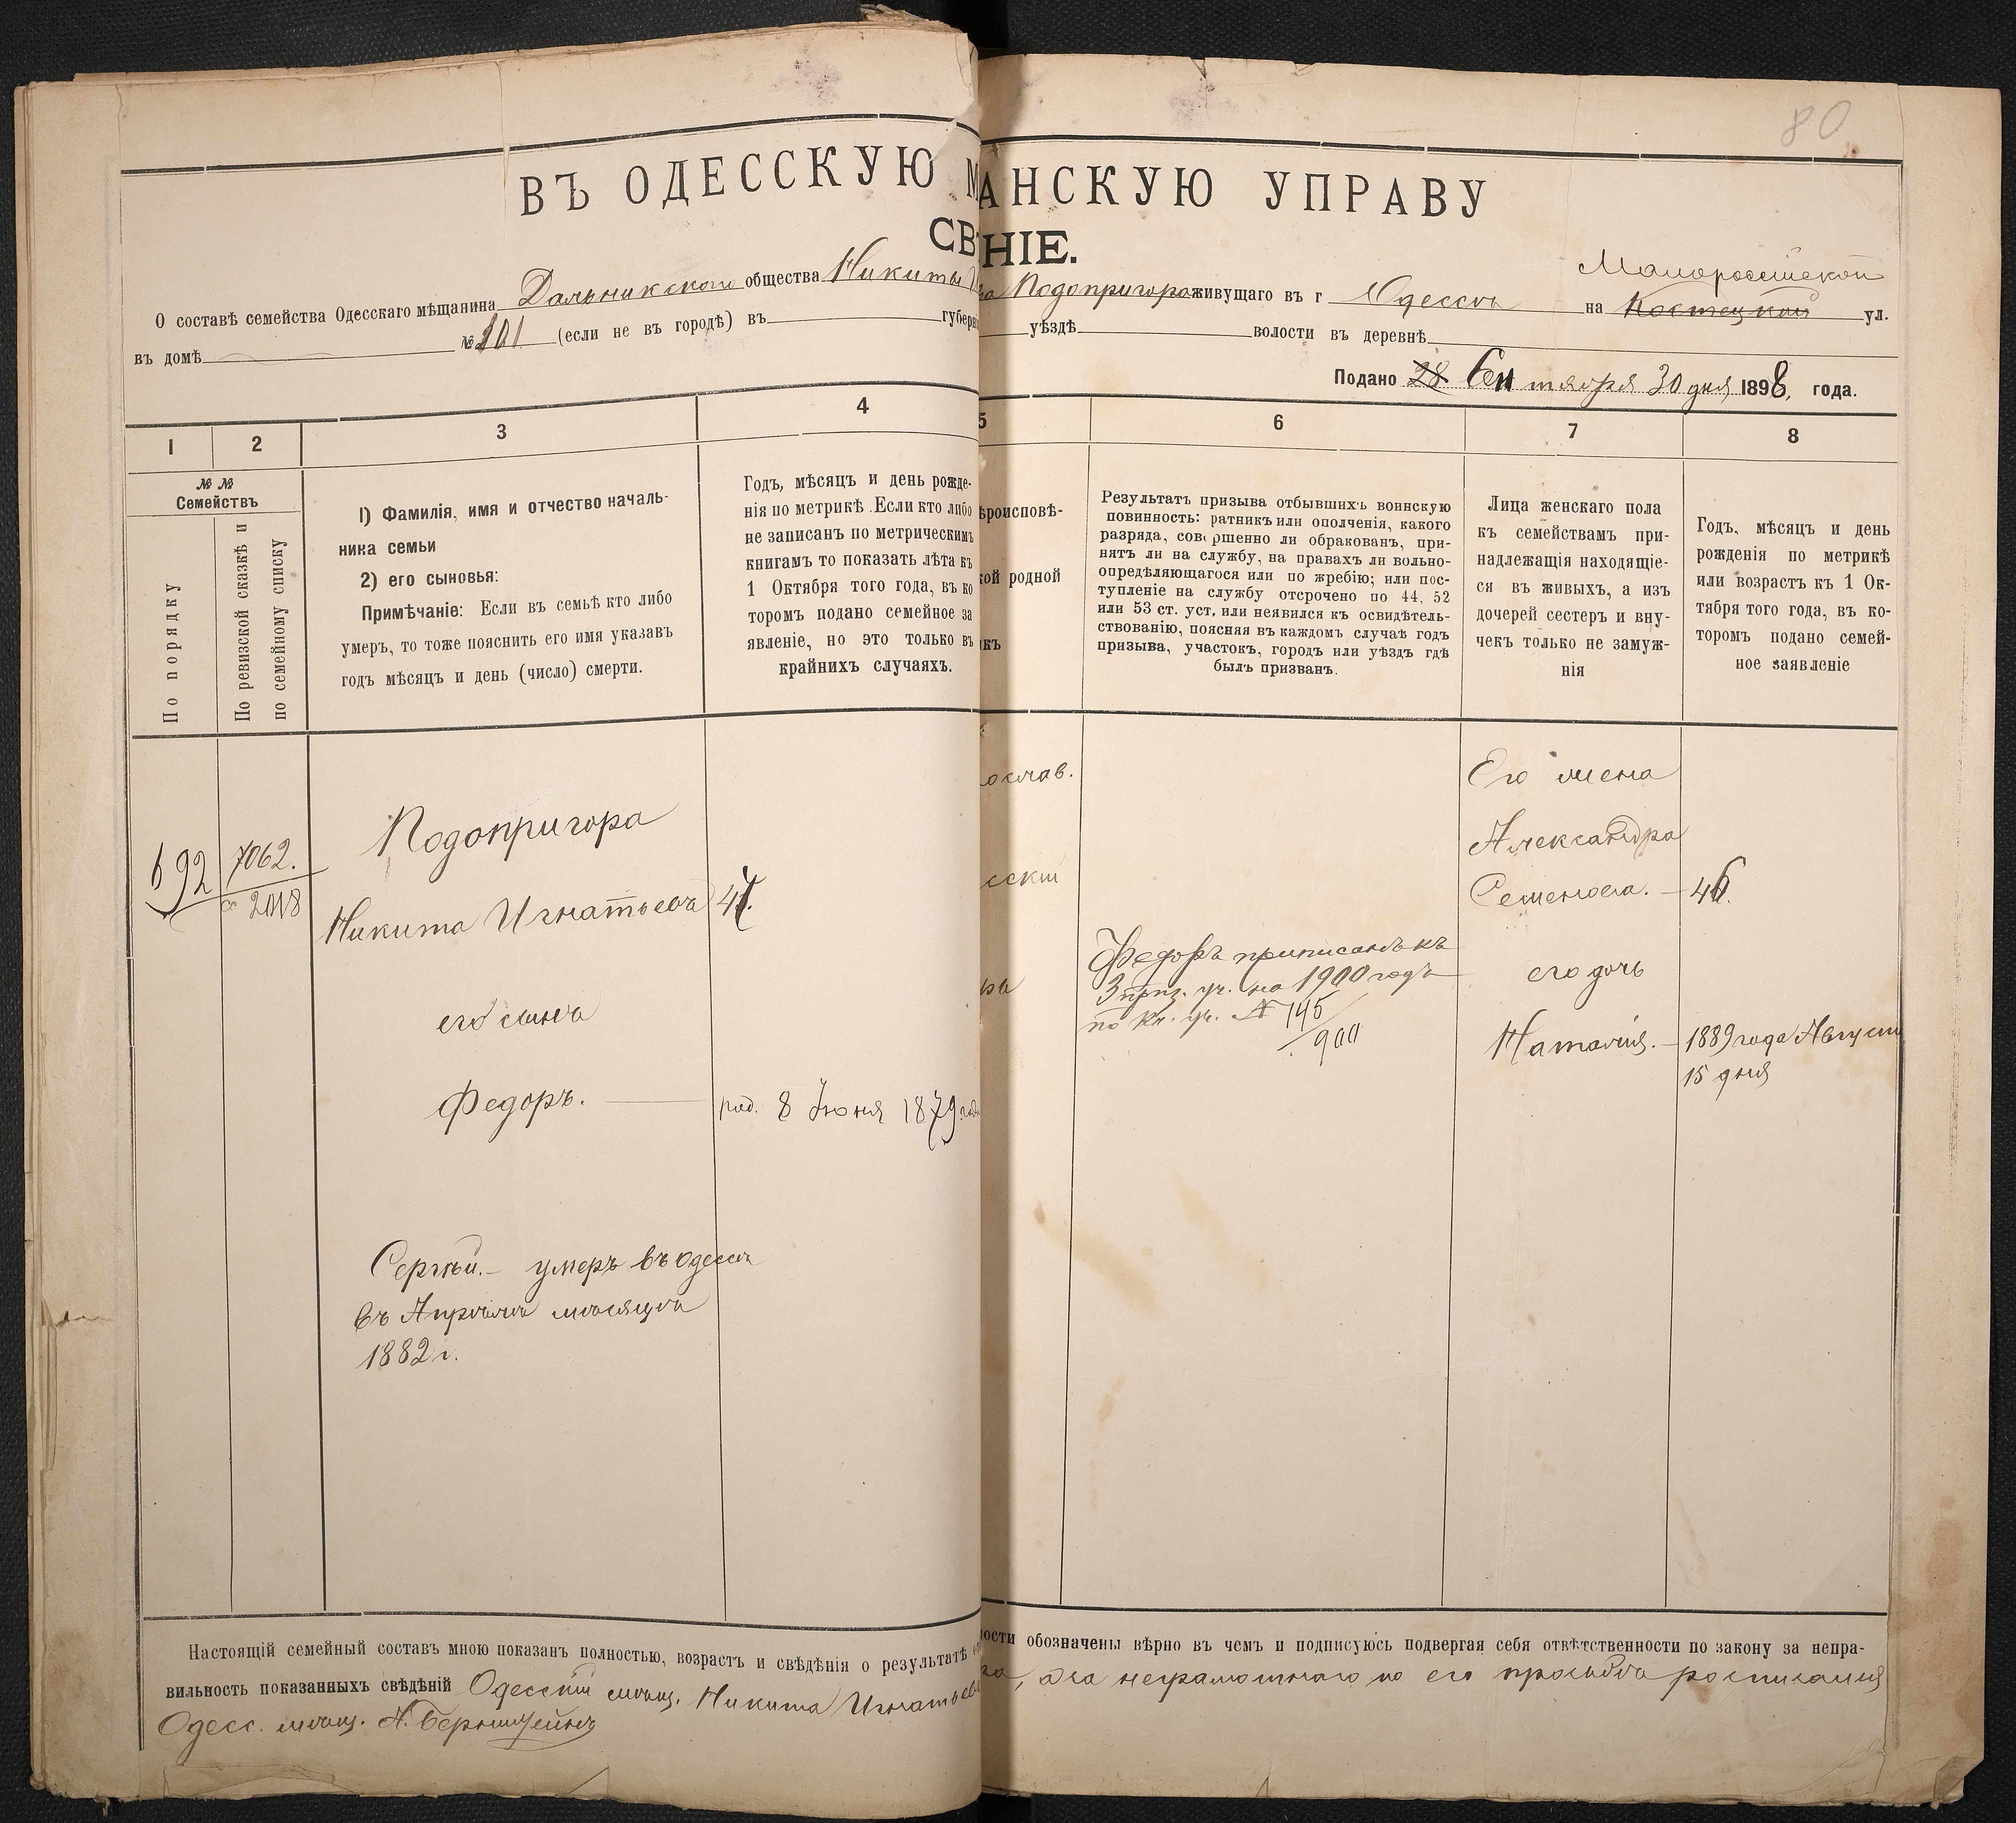 80
ВЪ ОДЕССКУЮ М АНСКУЮ УПРАВУ
СВ НІЕ.
О составѣ семейства Одесскаго мѣщанина Дальникскаго общества Никиты Подопригора живущаго въ г Одессѣ на Костецкой ул.
въ домѣ № 101 (если не въ городѣ) въ губерн уѣздѣ волости въ деревнѣ
Подано 28 Сентября 30 дня 1898, года.
1 2 3 4 5 6 7 8
№ №
Семействъ
По порядку
По ревизской сказкѣ и
по семейному списку
1) Фамилія, имя и отчество началь-
ника семьи
2) его сыновья:
Примѣчаніе: Если въ семьѣ кто либо
умеръ, то тоже пояснить его имя указавъ
годъ мѣсяцъ и день (число) смерти.
Годъ, мѣсяцъ и день рожде-
нія по метрикѣ. Если кто либо
не записанъ по метрическимъ
книгамъ то показать лѣта къ
1 Октября того года, въ ко
торомъ подано семейное за
явленіе, но это только въ
крайнихъ случаяхъ.
ѣроисповѣ-
кой родной
икъ
Результатъ призыва отбывшихъ воинскую
повинность: ратникъ или ополченія, какого
разряда, совершенно ли обракованъ, при-
нятъ ли на службу, на правахъ ли вольно-
опредѣляющагося или по жребію; или пос-
тупленіе на службу отсрочено по 44, 52
или 53 ст. уст. или неявился къ освидѣтель-
ствованію, поясняя въ каждомъ случаѣ годъ
призыва, участокъ, городъ или уѣздъ гдѣ
былъ призванъ.
Лица женскаго пола
къ семействамъ при-
надлежащія находящіе-
ся въ живыхъ, а изъ
дочерей сестеръ и вну-
чекъ только не замуж-
нія
Годъ, мѣсяцъ и день
рожденія по метрикѣ
или возрастъ къ 1 Ок-
тября того года, въ ко-
торомъ подано семей-
ное заявленіе
692
7062.
2018
Подопригора
Никита Игнатьевъ 47.
его сынъ
Федоръ. род. 8 Іюня 1879 года
Сергѣй. – умеръ въ Одессѣ
въ Апрѣлѣ мѣсяцѣ
1882 г.
ослав.
сскій
ра
Федоръ приписанъ къ
3 приз. уч. на 1900 годъ
по кн. уч. № 145
900
Его жена
Александра
Семенова. – 46.
его дочь
Наталія. – 1889 года Август
15 дня
Настоящій семейный составъ мною показанъ полностью, возрастъ и свѣдѣнія о результатѣ ности обозначены вѣрно въ чемъ и подписуюсь подвергая себя отвѣтственности по закону за непра-
вильность показанныхъ свѣдѣній Одесскій мѣщ. Никита Игнатьев ра, а за неграмотнаго по его просьбѣ росписался
Одесс. мѣщ. А. Бернштейнъ